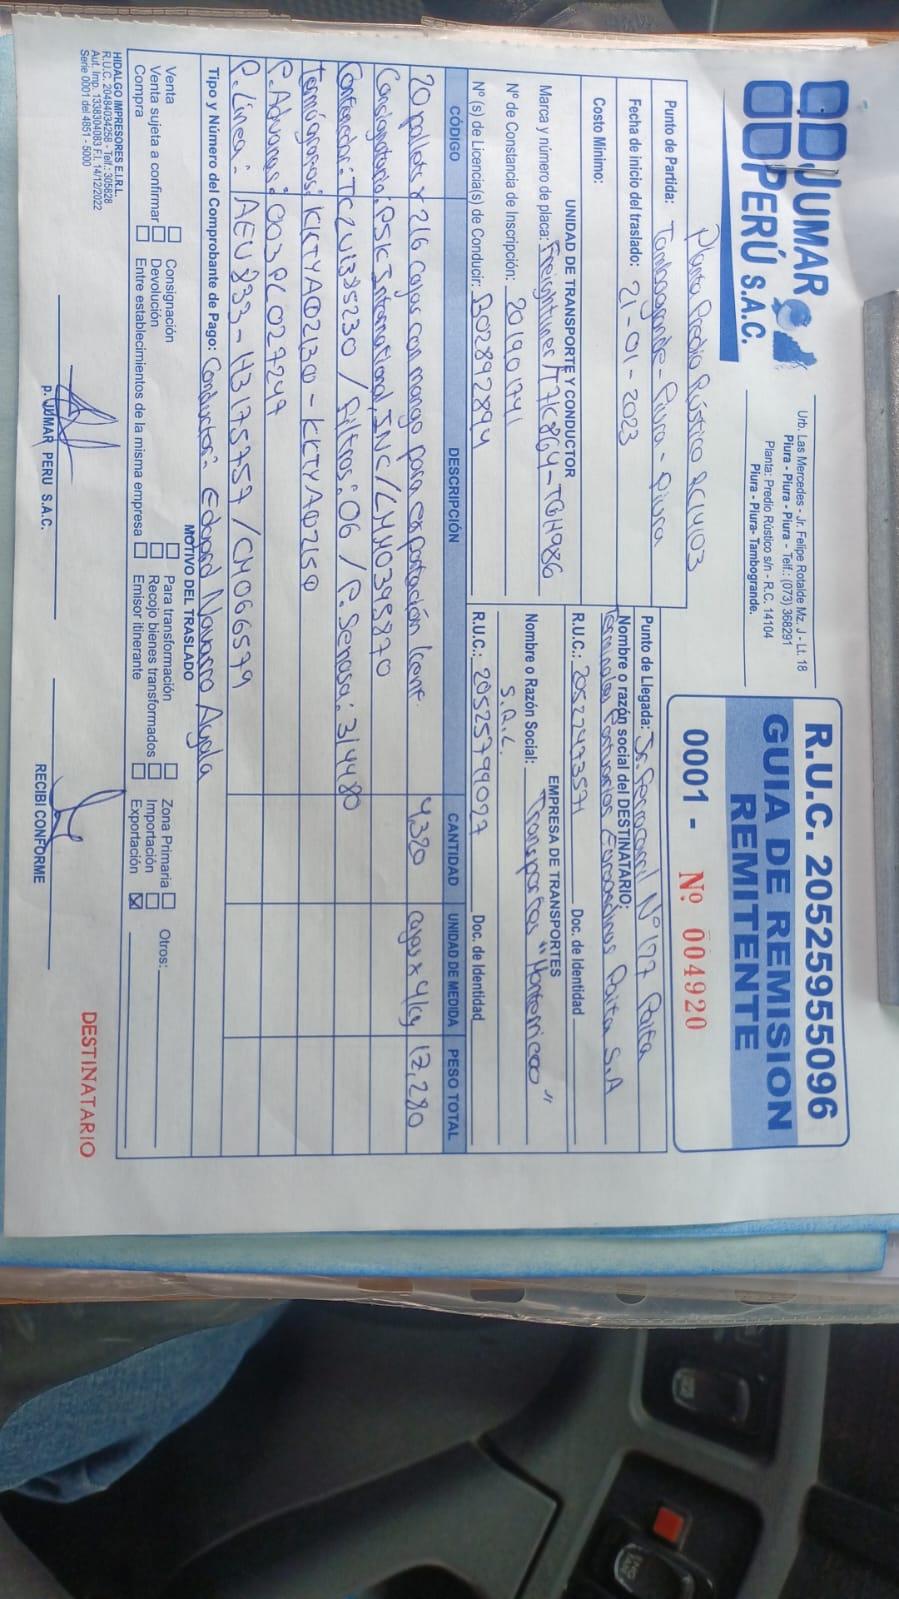 JUMAR
PERÚ S.A.C.
Urb. Las Mercedes - Jr. Felipe Rotalde Mz. J - Lt. 18
Piura - Piura - Piura - Telf.: (073) 368291
Planta: Predio Rústico s/n - R.C. 14104
Piura - Piura- Tambogrande.
R.U.C. 20525955096
GUIA DE REMISION
REMITENTE
0001 - Nº 004920
Planta Predio Rústico RC14103
Punto de Partida: Tambogrande - Piura - Piura
Fecha de inicio del traslado: 21-01-2023
Costo Minimo:
Punto de Llegada: Jr. Ferrocarril Nº 177 Paita
Nombre o razón social del DESTINATARIO:
Terminales Portuarios Euroandinos Paita S.A
R.U.C.: 20522473571 Doc. de Identidad
UNIDAD DE TRANSPORTE Y CONDUCTOR
Marca y número de placa: Freightliner/T7K864-TGM986
Nº de Constancia de Inscripción: 201901741
Nº (s) de Licencia(s) de Conducir: B02892894
EMPRESA DE TRANSPORTES
Nombre o Razón Social: Transportes "Monterrico"
S.R.L.
R.U.C.: 20525799027 Doc. de Identidad
CÓDIGO DESCRIPCIÓN CANTIDAD UNIDAD DE MEDIDA PESO TOTAL
20 pallets x 216 cajas con mango para exportación kent. 4,320 cajas x 4kg 17,280
Consignatario: PSK International, INC/LMM0395870
Contenedor: TCZU1385230 / Filtros: 06 / P. Senasa: 314480
Termógrafos: KKTYA02130 - KKTYA02150
P. Aduanas: 003PL027247
P. Línea: AEU833-H3175757 / CM066579
Tipo y Número del Comprobante de Pago: Conductor: Edgard Navarro Ayala
MOTIVO DEL TRASLADO
Venta Consignación Para transformación Zona Primaria Otros:
Venta sujeta a confirmar Devolución Recojo bienes transformados Importación
Compra Entre establecimientos de la misma empresa Emisor itinerante Exportación X
HIDALGO IMPRESORES E.I.R.L.
R.U.C. 20484034258 - Telf.: 305828
Aut. Imp. 1338304083 F.I. 14/12/2022
Serie 0001 del 4851 - 5000
p. JUMAR PERU S.A.C.
RECIBI CONFORME
DESTINATARIO